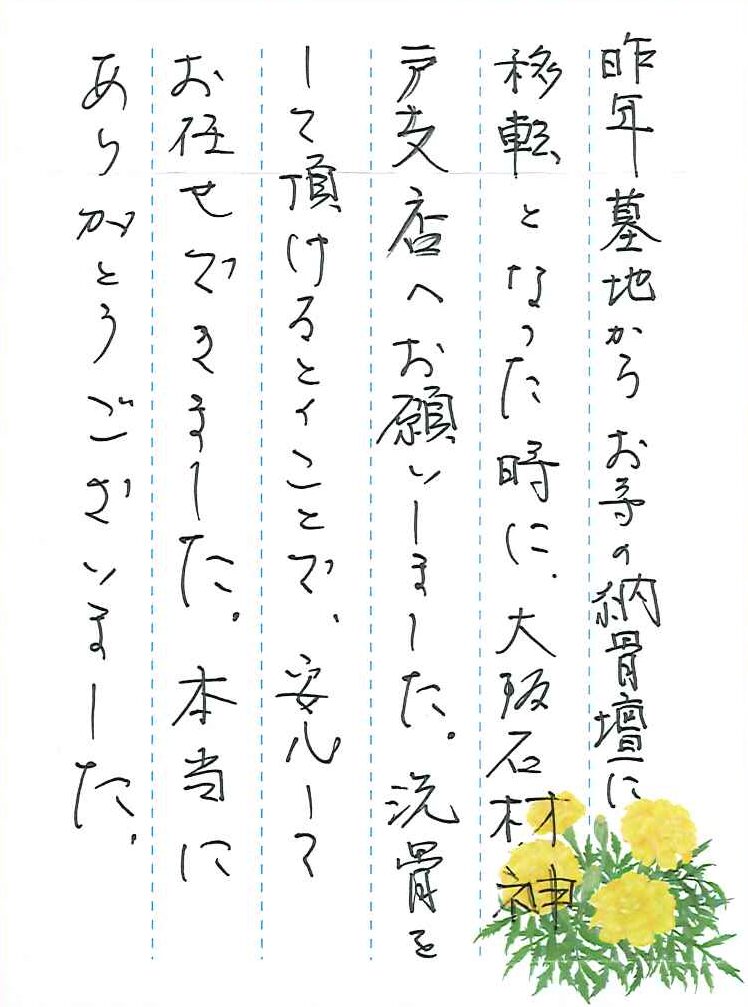 昨年墓地からお寺の納骨壇に
移転となった時に、大阪石材神
戸支店へお願いしました。洗骨を
して頂けるとくことで、安心して
お任せできました。本当に
ありがとうございました。